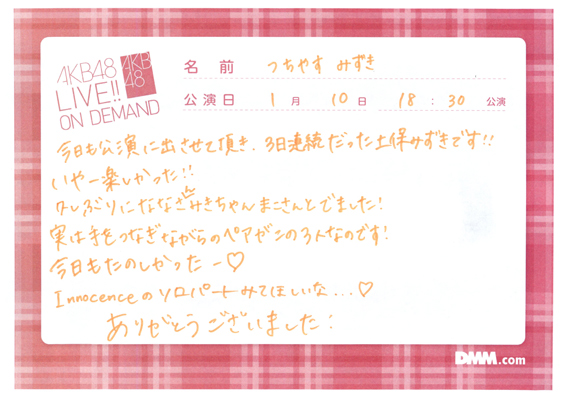 AKB48
LIVE!!
ON DEMAND
AKB
48
名前 つちやす みずき
公演日 1月 10日 18:30 公演
今日も公演に出させて頂き、3日連続だった土保みずきです!!
いやー楽しかった!!
久しぶりにななさんみきちゃんまこさんとでました!
実は手をつなぎながらのペアゼンの3人なのです!
今日もたのしかったー♡
Innocenceのソロパートみてほしいな...♡
ありがとうございました!
DMM.com